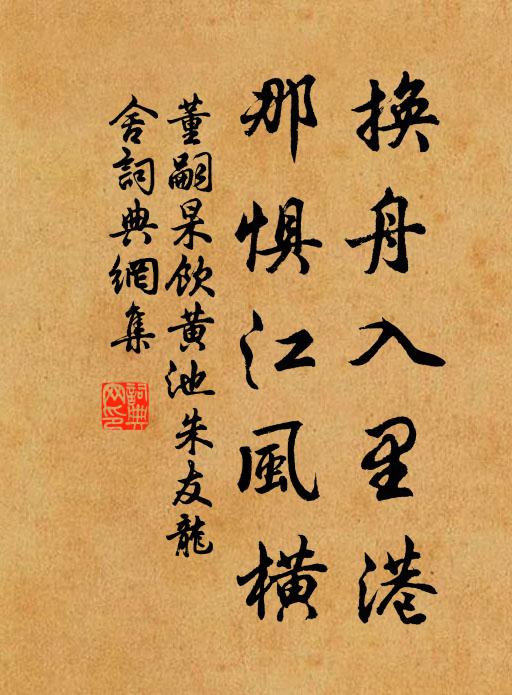 換舟入里港
那惧江風橫
董嗣杲飲黄池朱友龍
舍詞典網集
詞典网印